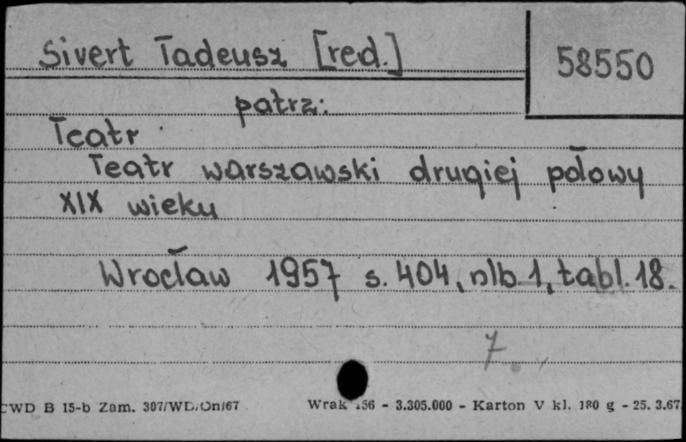 Sivert Tadeusz [red.]
58550
patrz:
Teatr
Teatr warszawski drugiej połowy
XIX wieku
Wrocław 1957 s. 404, nlb. 1, tabl. 18.
7.
CWD B 15-b Zam. 307/WD/On/67 Wrak 156 - 3.305.000 - Karton V kl. 180 g - 25. 3.67